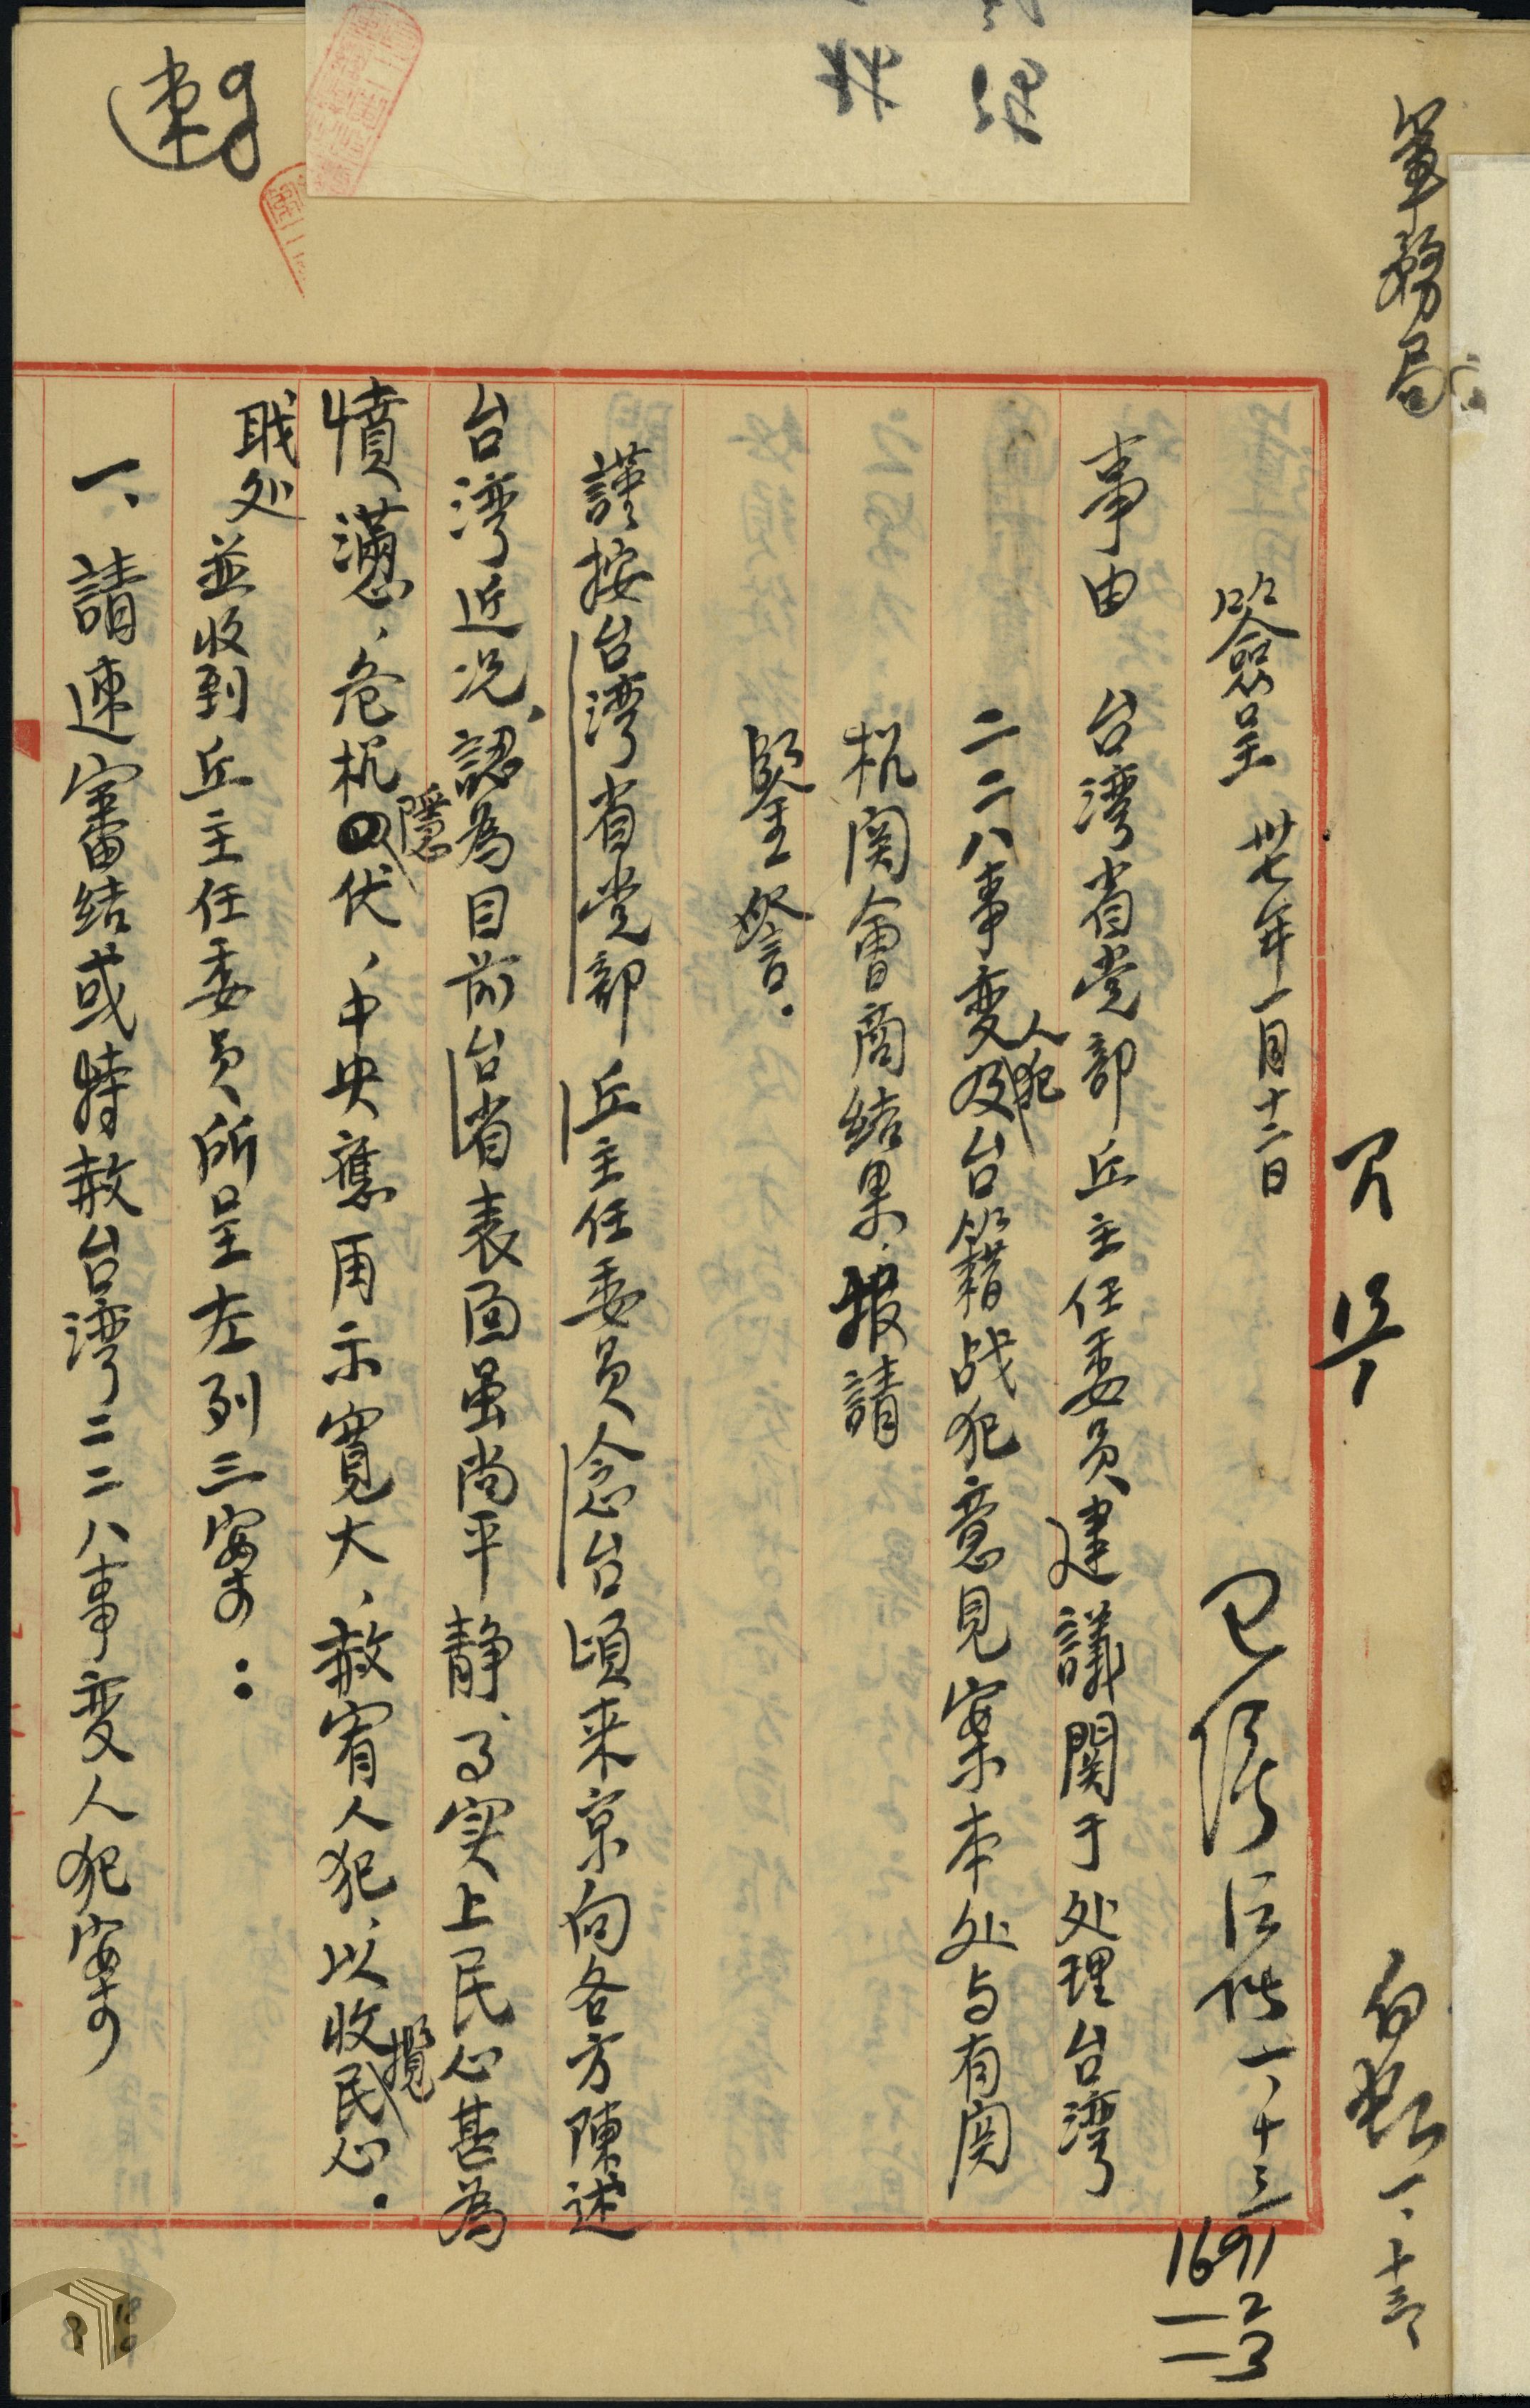 軍務局
簽呈 卅七年一月十二日
事由 台湾省党部丘主任委員建議関于处理台湾
二二八事変人犯及台籍战犯意見案本处与有関
机関會商結果，报請
鑒詧．
謹按台湾省党部丘主任委員念台頃来京向各方陳述
台湾近况，認為目前台省表面虽尚平静，事实上民心甚為
憤懣，危机隱伏，中央應用示寬大，赦宥人犯，以收攬民心．
职处並收到丘主任委員所呈左列三案：
一、請速審結或特赦台湾二二八事变人犯案
速
1691